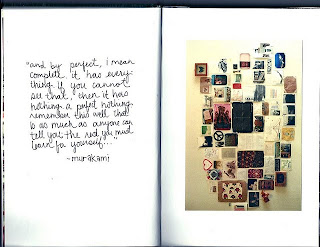 "and by perfect, i mean
complete. it has every-
thing. If you cannot
see that, then it has
nothing. a perfect nothing.
remember this well. that
is as much as anyone can
tell you. the rest you must
learn for yourself..."
-murakami